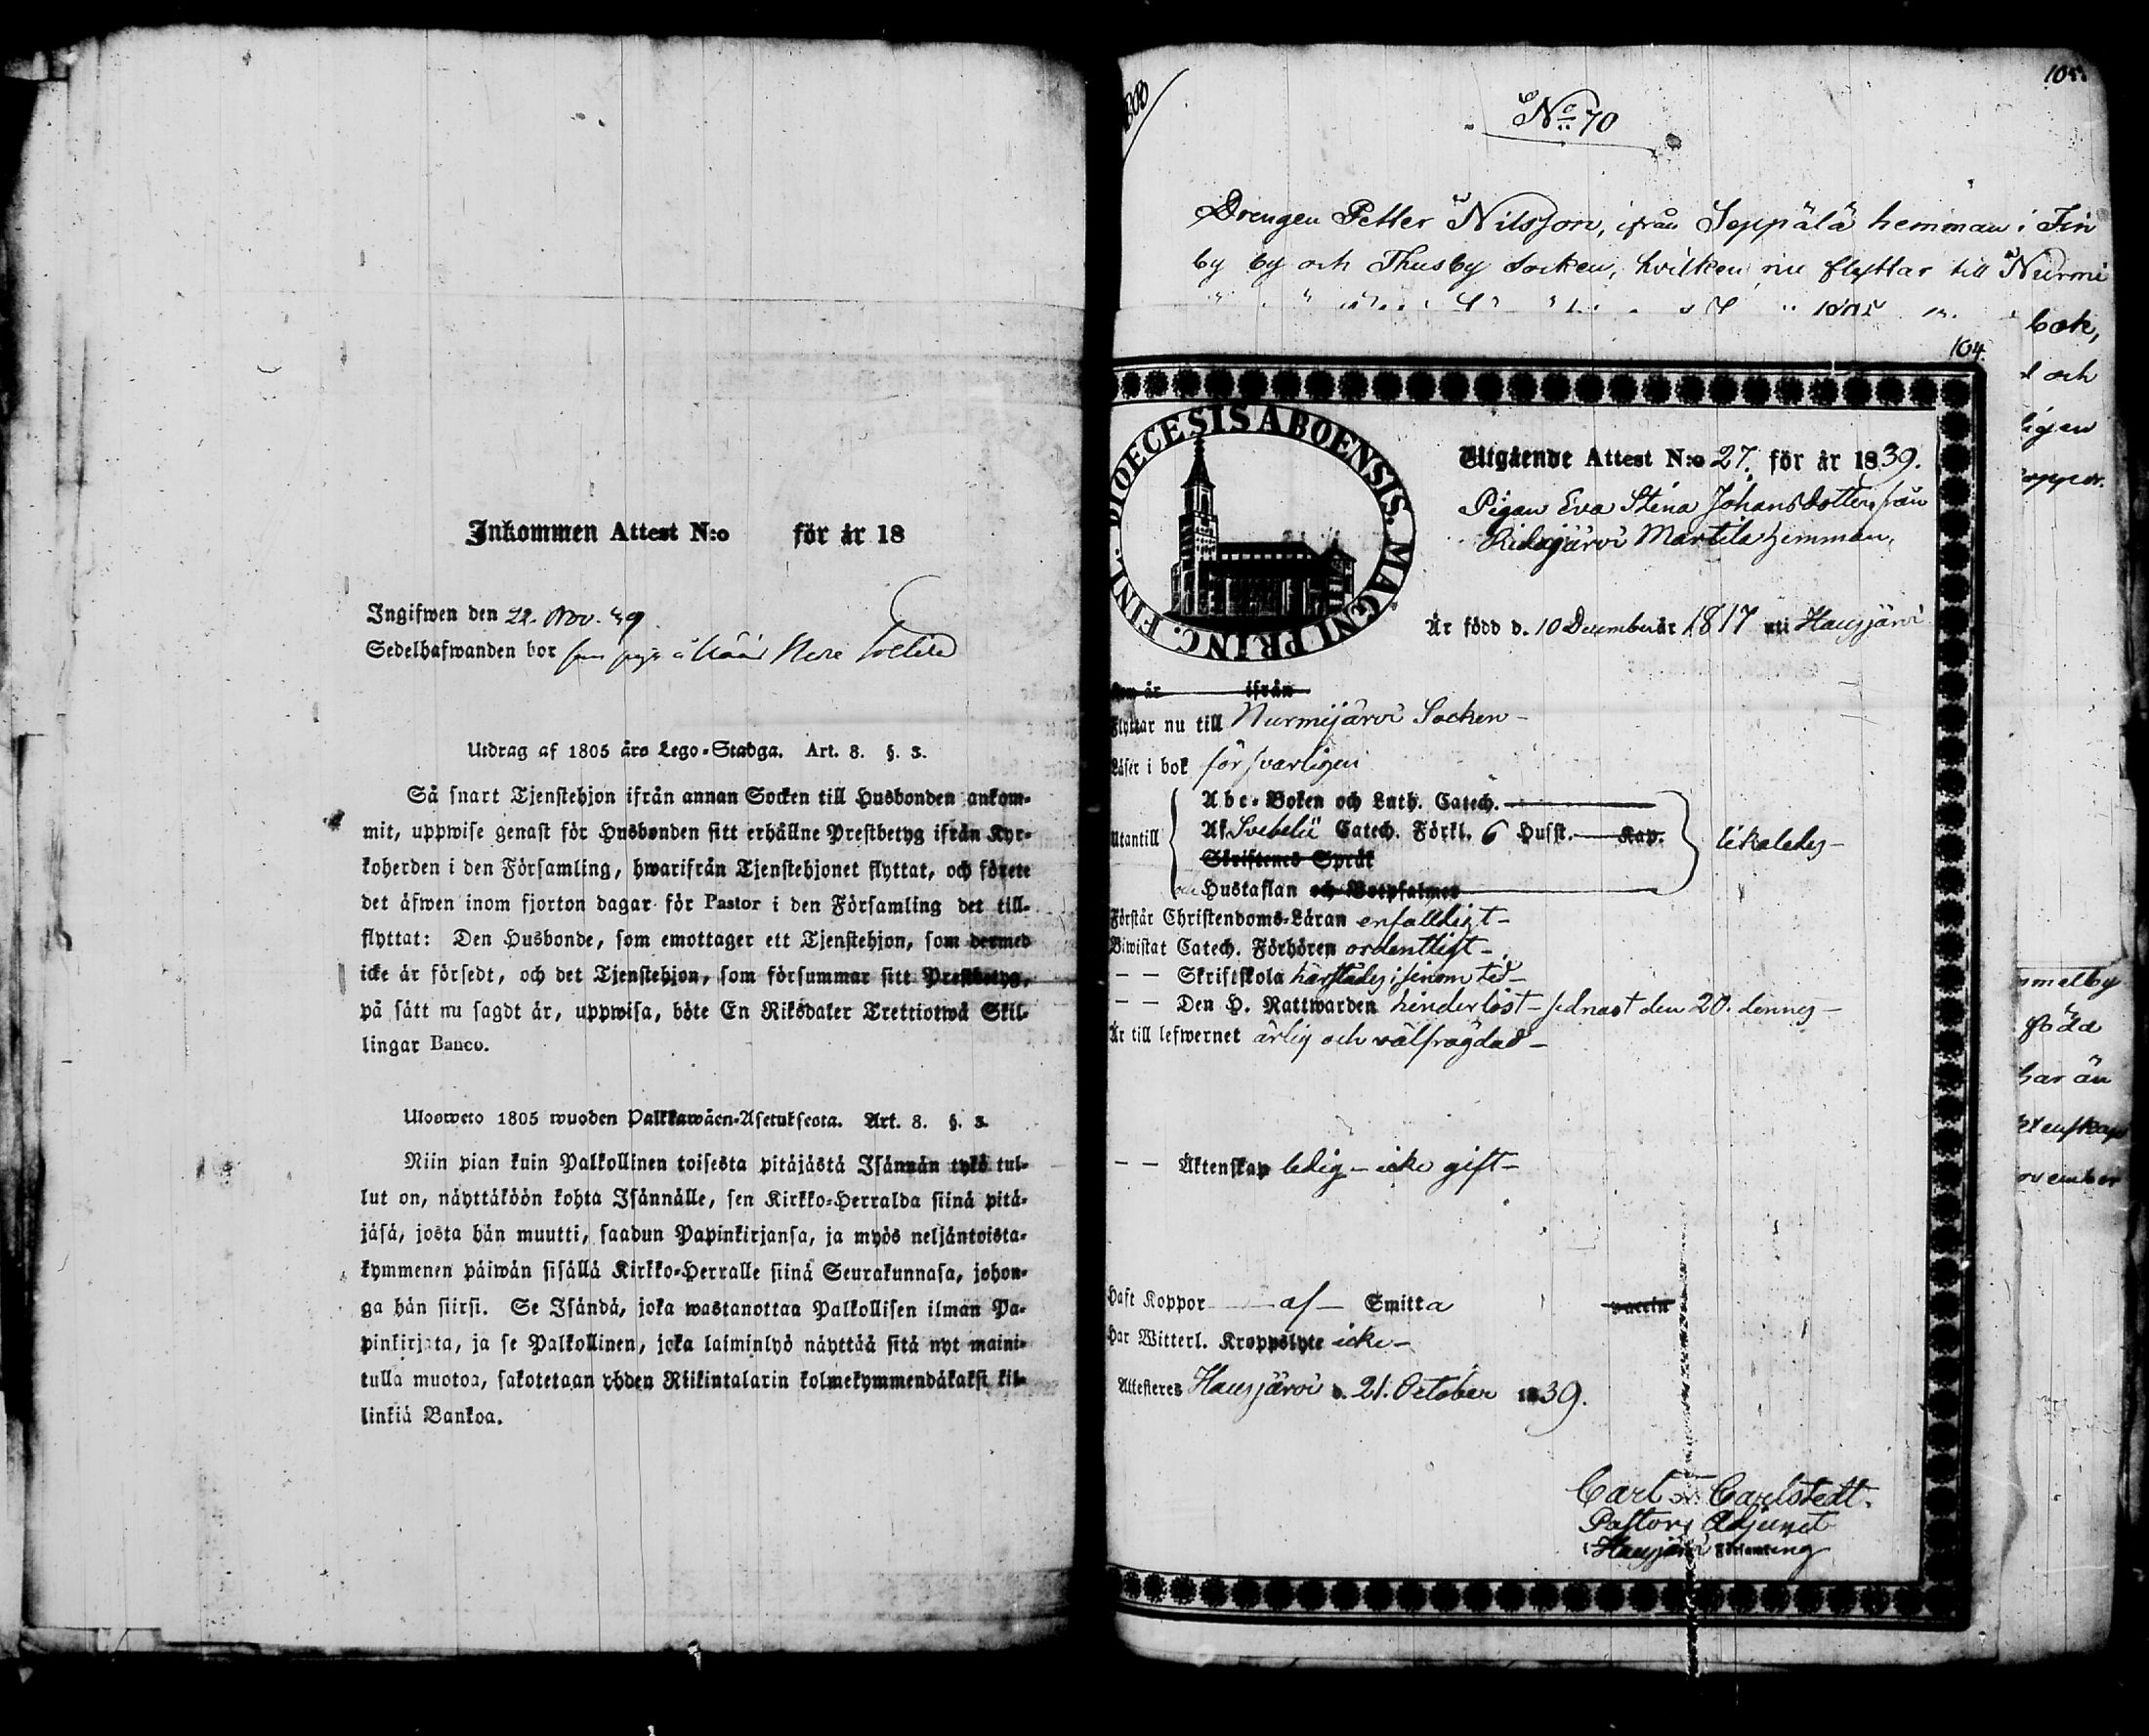 Inkommen Attest N:o för år 18
Ingifwen den 22. Nov. 39
Sedelhafwanden bor
Utdrag af 1805 års Lego-Stadga. Art. 8. §. 3.
Så snart Tjenstehjon ifrån annan Socken till Husbonden ankom-
mit, uppwise genast för Husbonden sitt erhållne Prestbetyg ifrån Kyr-
koherden i den Församling, hwarifrån Tjenstehjonet flyttat, och förete
det äfwen inom fjorton dagar för Pastor i den Församling det till-
flyttat: Den Husbonde, som emottager ett Tjenstehjon, som dermed
icke är försedt, och det Tjenstehjon, som försummar sitt Prestbetyg,
på sätt nu sagdt är, uppwisa, böte En Riksdaler Trettiotwå Skil-
lingar Banco.
Ulosweto 1805 wuoden Palkkawäen-Asetuksesta. Art. 8. §. 3.
Niin pian kuin Palkollinen toisesta pitäjästä Isännän tykö tul-
lut on, näyttäköön kohta Isännälle, sen Kirkko-Herralda siinä pitä-
jäsä, josta hän muutti, saadun Papinkirjansa, ja myös neljäntoista-
kymmenen päiwän sisällä Kirkko-Herralle siinä Seurakunnasa, johon-
ga hän siirsi. Se Isändä, joka wastanottaa Palkollisen ilman Pa-
pinkirjata, ja se Palkollinen, joka laiminlyö näyttää sitä nyt maini-
tulla muotoa, sakotetaan yhden Riikintalarin kolmekymmendäkaksi kil-
linkiä Bankoa.
105.
No 70
Drengen Petter Nilsson, ifrån Seppälä hemman i Fin
by by och Thusby Socken, hvilken nu flyttar till Nurmi
bok,
och
104.
DIOECESIS ABOENSIS. MAGNI PRINC. FINL.
Utgående Attest N:o 27. för år 1839.
Pigan Eva Stina Johansdotter från
Ridasjärvi Martila hemman,
Är född d. 10 December år 1817 uti Hausjärvi
Som är ifrån
Flyttar nu till Nurmijärvi Socken-
Läser i bok försvarligen
Utantill
Abc-Boken och Luth. Catech.
Af Svebelii Catech. Förkl. 6 Husst. Kap.
Skriftenes Språk
och Hustaflan och Botpsalmer
likaledes-
Förstår Christendoms-Läran enfalldigt-
Biwistat Catech. Förhören ordentligt-
— — Skriftskola härstädes i sinom tid-
— — Den H. Nattwarden hinderlöst- sednast den 20. dennes-
Är till lefwernet ärlig och välfrägdad-
— — Äktenskap ledig- icke gift-
Haft Koppor af Smitta vaccin
Har Witterl. Kroppslyte icke-
Attesteres Hausjärvi d. 21. October 1839.
Carl Carlstedt.
Pastors Adjunct
i Hausjärvi Församling
född
har än
ovember